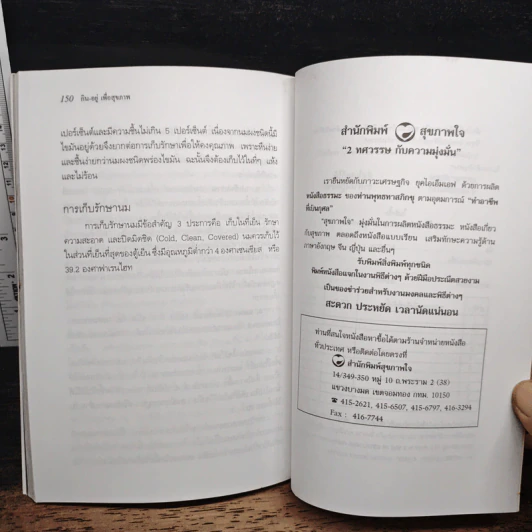 150 กิน-อยู่ เพื่อสุขภาพ
เปอร์เซ็นต์และมีความชื้นไม่เกิน 5 เปอร์เซ็นต์ เนื่องจากนมผงชนิดนี้มี
ไขมันอยู่ด้วยจึงยากต่อการเก็บรักษาเพื่อให้คงคุณภาพ เพราะหืนง่าย
และชื้นง่ายกว่านมผงชนิดพร่องไขมัน ฉะนั้นจึงต้องเก็บไว้ในที่ๆ แห้ง
และไม่ร้อน
การเก็บรักษานม
การเก็บรักษานมมีข้อสำคัญ 3 ประการคือ เก็บในที่เย็น รักษา
ความสะอาด และปิดมิดชิด (Cold, Clean, Covered) นมควรเก็บไว้
ในส่วนที่เย็นที่สุดของตู้เย็น ซึ่งมีอุณหภูมิต่ำกว่า 4 องศาเซนเซียส หรือ
39.2 องศาฟาเรนไฮท
สำนักพิมพ์ สุขภาพใจ
"2 ทศวรรษ กับความมุ่งมั่น"
เรายืนหยัดกับภาวะเศรษฐกิจ ยุคไอเอ็มเอฟ ด้วยการผลิต
หนังสือธรรมะ ของท่านพุทธทาสภิกขุ ตามอุดมการณ์ "ทำอาชีพ
ที่เป็นกุศล"
"สุขภาพใจ" มุ่งมั่นในการผลิตหนังสือธรรมะ หนังสือเกี่ยว
กับสุขภาพ ตลอดถึงหนังสือแบบเรียน เสริมทักษะความรู้ด้าน
ภาษาอังกฤษ จีน ญี่ปุ่น และอื่นๆ
รับพิมพ์สิ่งพิมพ์ทุกชนิด
พิมพ์หนังสือแจกในงานพิธีต่างๆ ด้วยฝีมือประณีตสวยงาม
เป็นของชำร่วยสำหรับงานมงคลและพิธีต่างๆ
สะดวก ประหยัด เวลานัดแน่นอน
ท่านที่สนใจหนังสือหาซื้อได้ตามร้านจำหน่ายหนังสือ
ทั่วประเทศ หรือติดต่อโดยตรงที่
สำนักพิมพ์สุขภาพใจ
14/349-350 หมู่ 10 ถ.พระราม 2 (38)
แขวงบางมด เขตจอมทอง กทม. 10150
☎ 415-2621, 415-6507, 415-6797, 416-3294
Fax : 416-7744